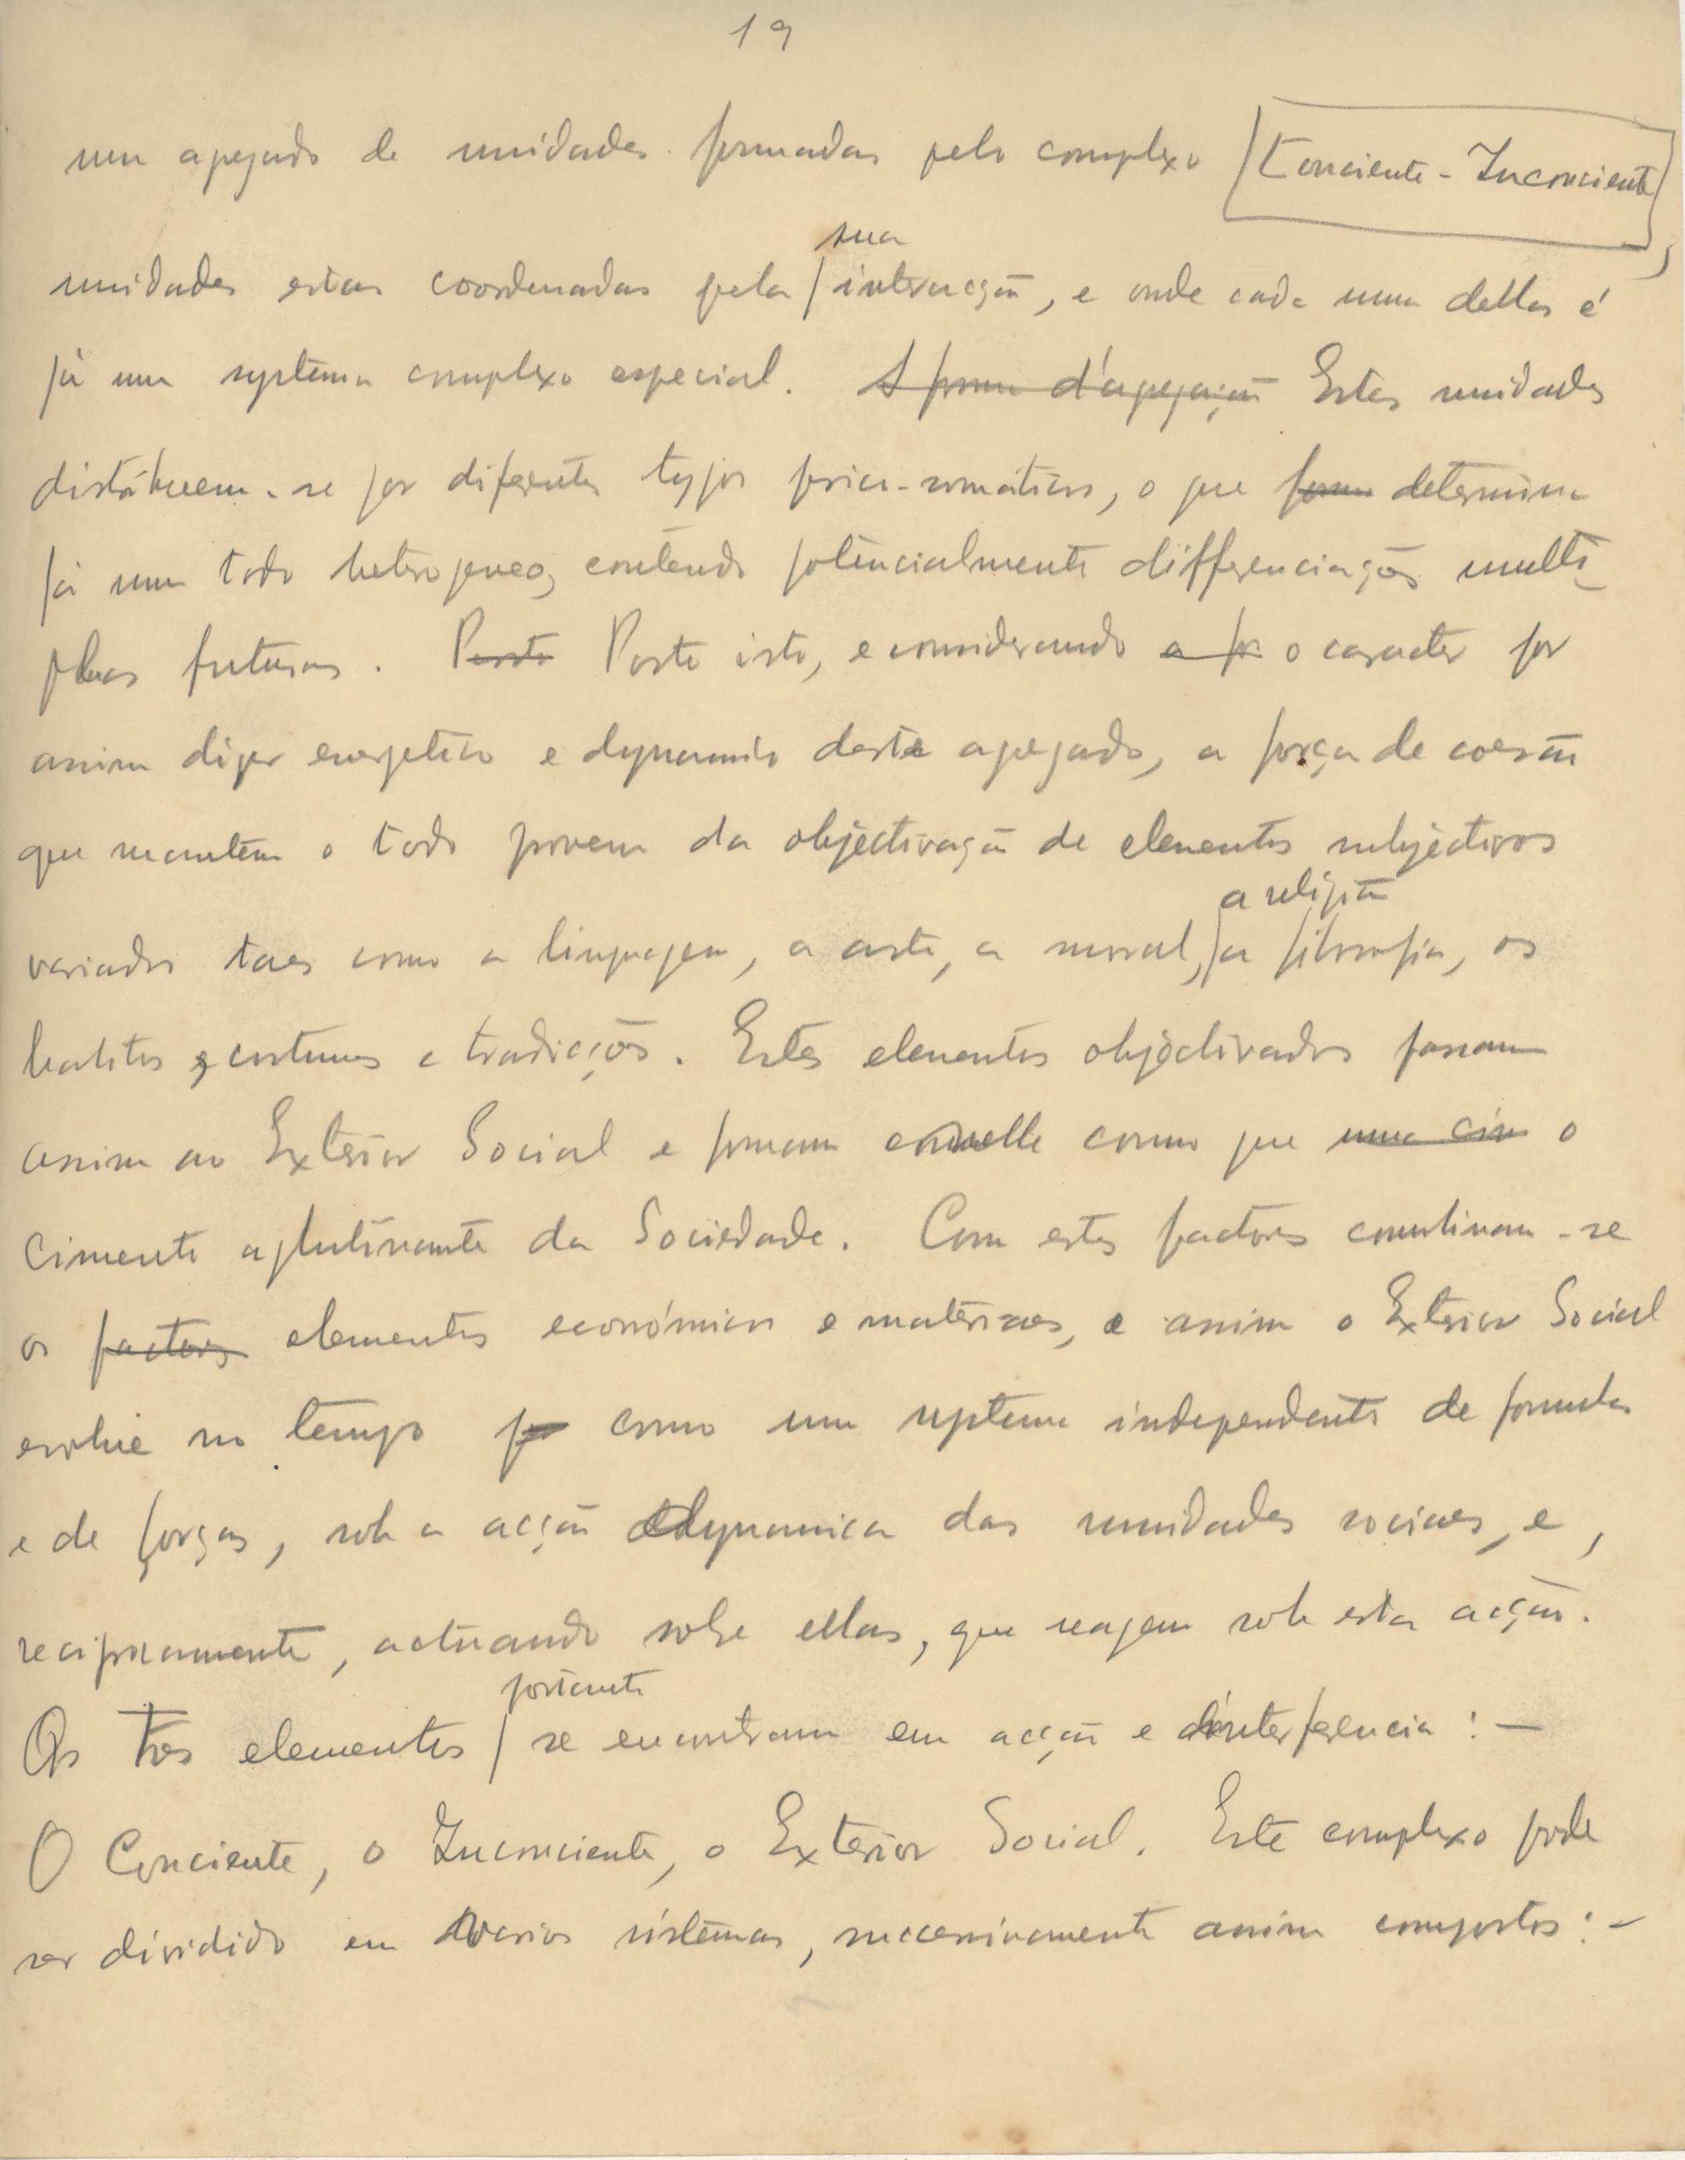 19
um agregado de unidades formadas pelo complexo [Conciente - Inconciente]
unidades estas coordenadas pela sua interacção, e onde cada uma dellas é
já um systema complexo especial. A forma d'agregação Estas unidades
distribuem-se por diferentes typos psico-somáticos, o que forma determina
já um todo heterogeneo, contendo potencialmente differenciações multi-
plas futuras. Posto Posto isto, e considerando a fo o caracter por
assim dizer energetico e dynamico deste agregado, a força de coesão
que mantem o todo provem da objectivação de elementos subjectivos
variados taes como a linguagem, a arte, a moral, a religião a filosofia, os
habitos e costumes e tradicções. Estes elementos objectivados passam
assim ao Exterior Social e formam como que uma cim o
cimento aglutinante da Sociedade. Com estes factores combinam-se
os factores elementos económicos e materiaes, e assim o Exterior Social
evolue no tempo como um systema independente de formulas
e de forças, sob a acção dynamica das unidades sociaes, e,
reciprocamente, actuando sobre ellas, que reagem sob esta acção.
Os Tres elementos portanto se encontram em acção e interferencia: —
O Conciente, o Inconciente, o Exterior Social. Este complexo pode
ser dividido em varios sistemas, successivamente assim compostos: -